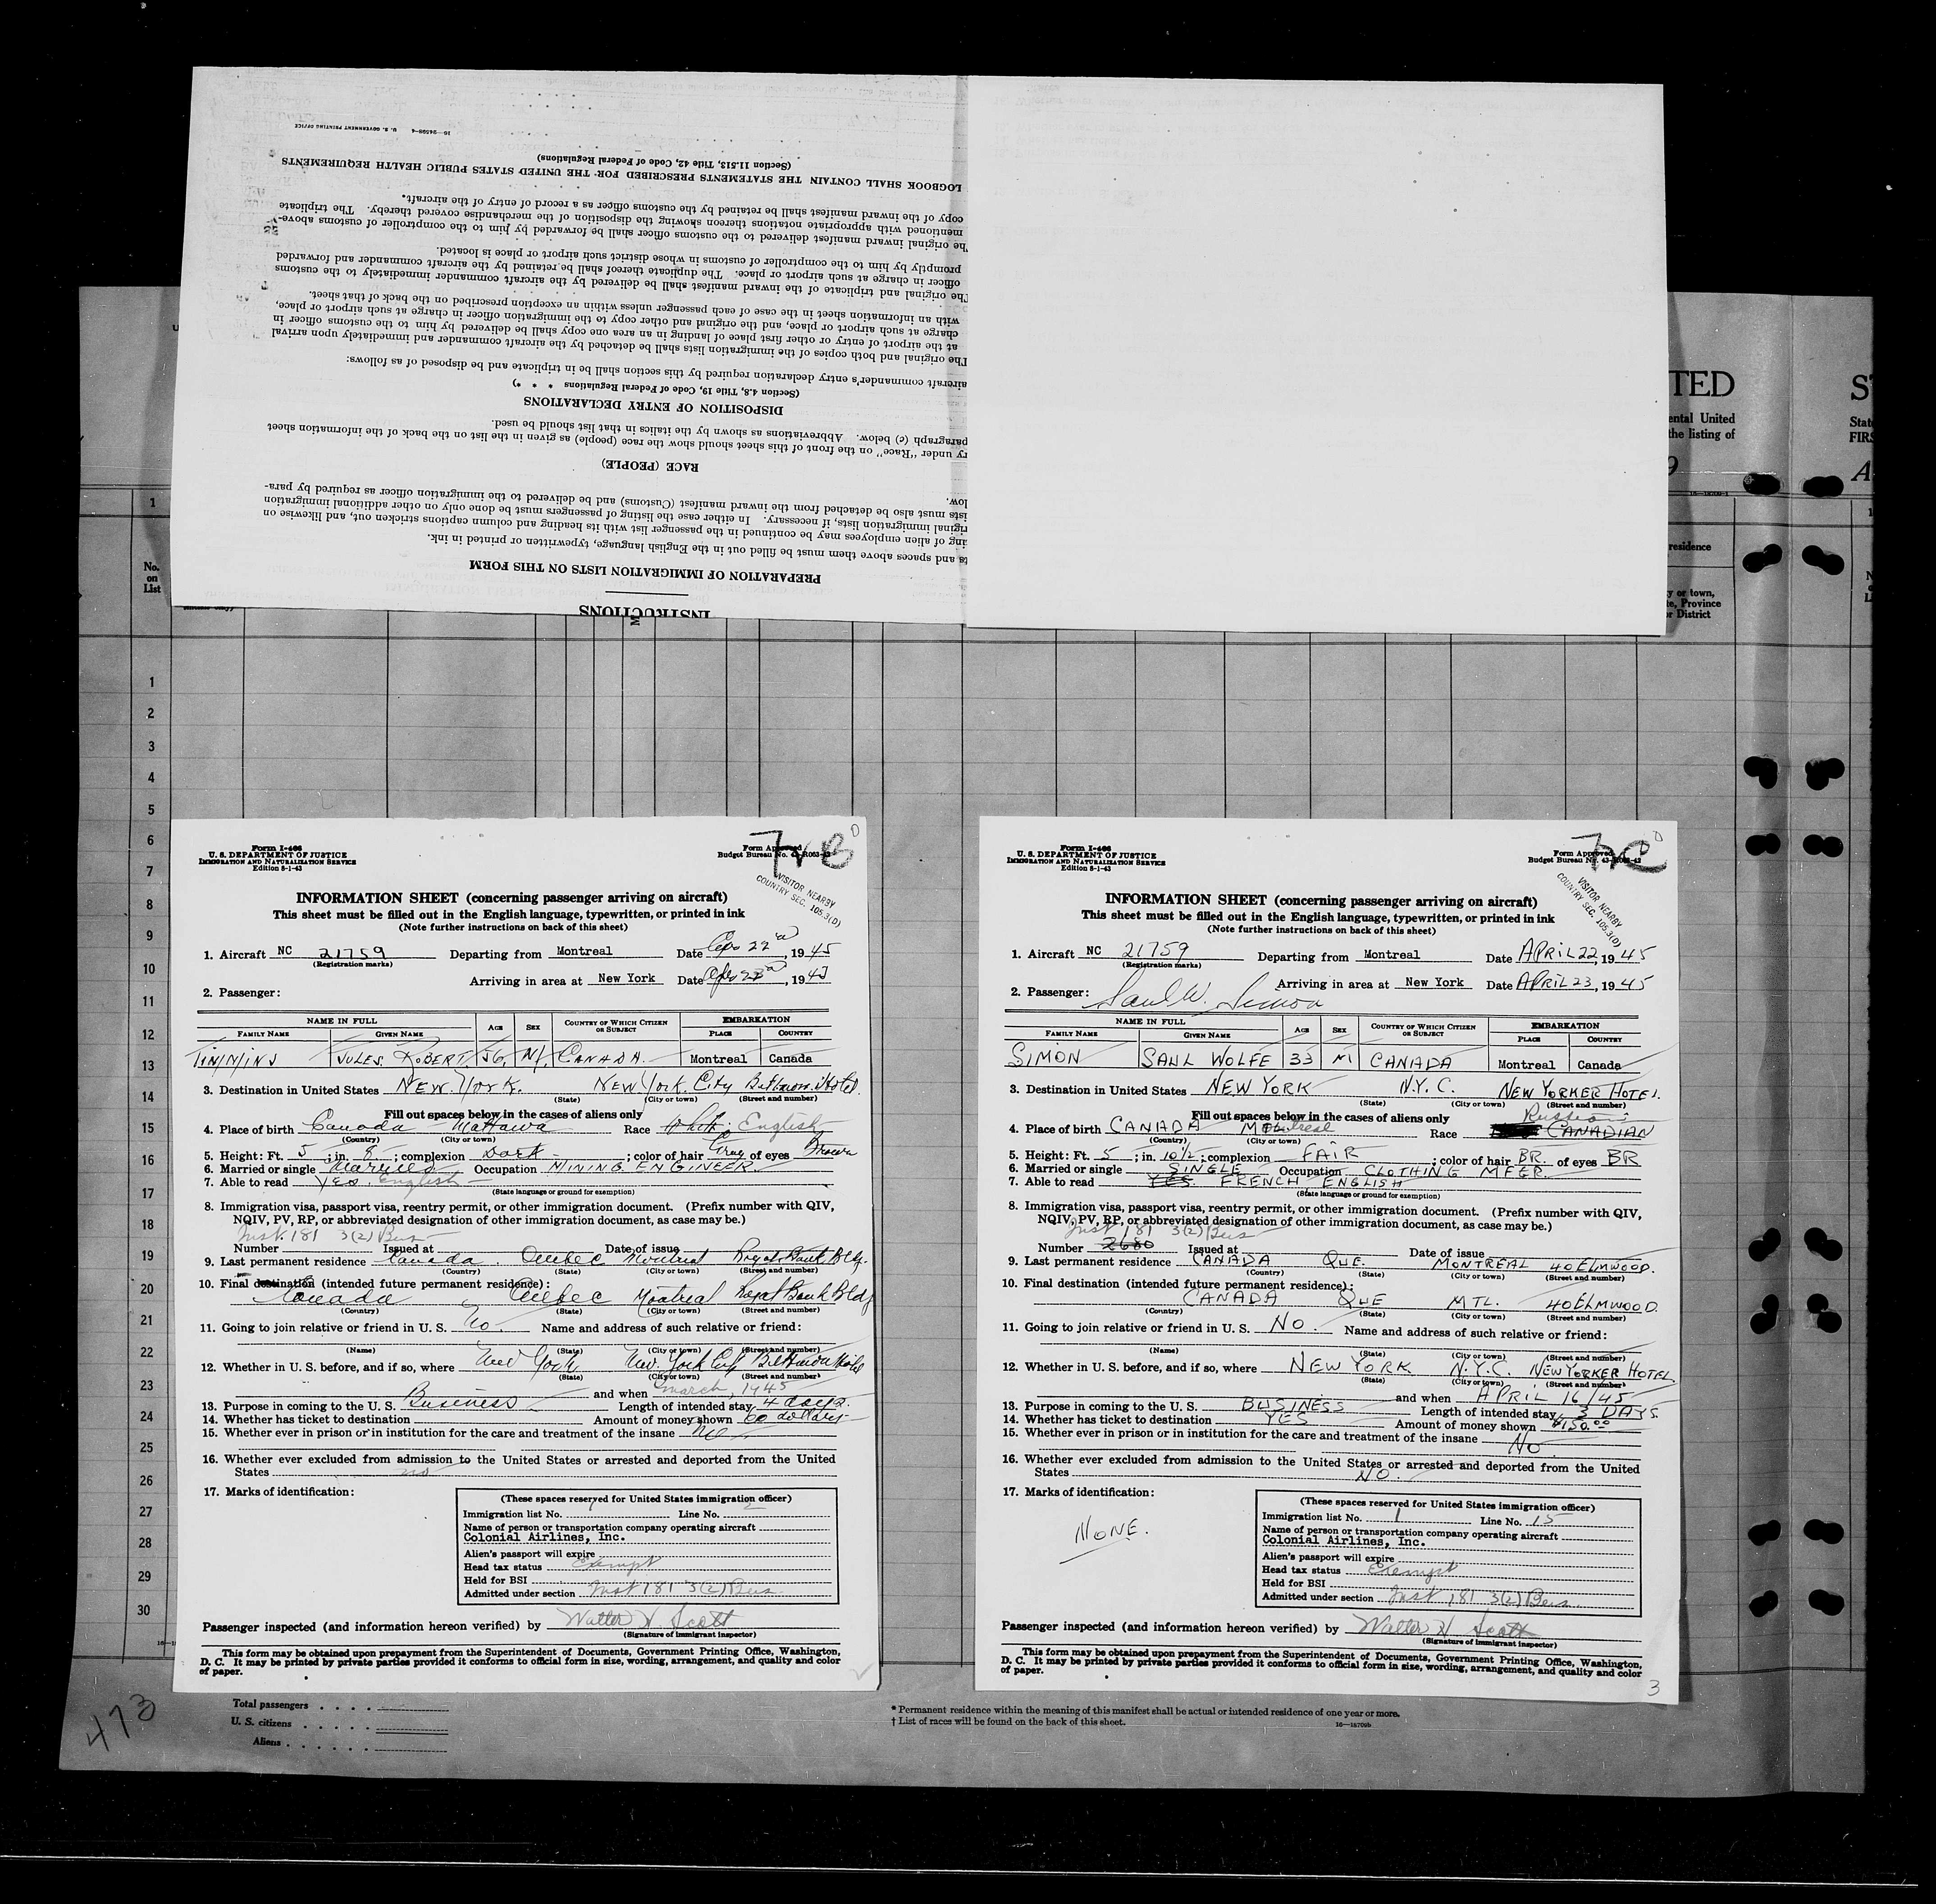 INSTRUCTIONS
PREPARATION OF IMMIGRATION LISTS ON THIS FORM
ts and spaces above them must be filled out in the English language, typewritten or printed in ink.
ing of alien employees may be continued in the passenger list with its heading and column captions stricken out, and likewise on
riginal immigration lists, if necessary. In either case the listing of passengers must be done only on other additional immigration
ists must also be detached from the inward manifest (Customs) and be delivered to the immigration officer as required by para-
low.
RACE (PEOPLE)
ry under "Race" on the front of this sheet should show the race (people) as given in the list on the back of the information sheet
paragraph (c) below. Abbreviations as shown by the italics in that list should be used.
DISPOSITION OF ENTRY DECLARATIONS
(Section 4.8, Title 19, Code of Federal Regulations * * *)
aircraft commander's entry declaration required by this section shall be in triplicate and be disposed of as follows:
The original and both copies of the immigration lists shall be detached by the aircraft commander and immediately upon arrival
at the airport of entry or other first place of landing in an area one copy shall be delivered by him to the customs officer in
charge at such airport or place, and the original and other copy to the immigration officer in charge at such airport or place,
with an information sheet in the case of each passenger unless within an exception prescribed on the back of that sheet.
The original and triplicate of the inward manifest shall be delivered by the aircraft commander immediately to the customs
officer in charge at such airport or place. The duplicate thereof shall be retained by the aircraft commander and forwarded
promptly by him to the comptroller of customs in whose district such airport or place is located.
The original inward manifest delivered to the customs officer shall be forwarded by him to the comptroller of customs above-
mentioned with appropriate notations thereon showing the disposition of the merchandise covered thereby. The triplicate
copy of the inward manifest shall be retained by the customs officer as a record of entry of the aircraft.
LOGBOOK SHALL CONTAIN THE STATEMENTS PRESCRIBED FOR THE UNITED STATES PUBLIC HEALTH REQUIREMENTS
(Section 11.513, Title 42, Code of Federal Regulations)
16—26598-4 U. S. GOVERNMENT PRINTING OFFICE
TED
ental United
the listing of
9
residence
y or town,
te, Province
or District
State
FIRS
1
No.
on
List
1
2
3
4
5
6
7
8
9
10
11
12
13
14
15
16
17
18
19
20
21
22
23
24
25
26
27
28
29
30
Form I-466
U. S. DEPARTMENT OF JUSTICE
IMMIGRATION AND NATURALIZATION SERVICE
Edition 8-1-43
Form Approved
Budget Bureau No. 43-R063-42
VISITOR NEARBY
COUNTRY SEC. 105.3(D)
INFORMATION SHEET (concerning passenger arriving on aircraft)
This sheet must be filled out in the English language, typewritten, or printed in ink
(Note further instructions on back of this sheet)
1. Aircraft NC 21759 Departing from Montreal Date 22, 1945
(Registration marks)
Arriving in area at New York Date 1945
2. Passenger:
NAME IN FULL AGE SEX COUNTRY OF WHICH CITIZEN OR SUBJECT EMBARKATION
FAMILY NAME GIVEN NAME PLACE COUNTRY
JULES ROBERT 56 M CANADA. Montreal Canada
3. Destination in United States NEW YORK. NEW YORK City Biltmore Hotel
(State) (City or town) (Street and number)
Fill out spaces below in the cases of aliens only
4. Place of birth Canada Mattawa Race White English
(Country) (City or town)
5. Height: Ft. 5; in. 8; complexion Dark; color of hair Gray of eyes Brown
6. Married or single Married Occupation MINING ENGINEER
7. Able to read Yes. English
(State language or ground for exemption)
8. Immigration visa, passport visa, reentry permit, or other immigration document. (Prefix number with QIV,
NQIV, PV, RP, or abbreviated designation of other immigration document, as case may be.)
Inst. 181 3(2) Bus
Number Issued at Date of issue
9. Last permanent residence Canada. Quebec Montreal Royal Bank Bldg.
(Country) (State) (City or town) (Street and number)
10. Final destination (intended future permanent residence):
Canada Quebec Montreal Royal Bank Bldg
(Country) (State) (City or town) (Street and number)
11. Going to join relative or friend in U. S. No. Name and address of such relative or friend:
(Name) (State) (City or town) (Street and number)
12. Whether in U. S. before, and if so, where New York New York City Biltmore Hotel
(State) (City or town) (Street and number)
and when March, 1945
13. Purpose in coming to the U. S. Business Length of intended stay 4 days.
14. Whether has ticket to destination Amount of money shown 60 dollars
15. Whether ever in prison or in institution for the care and treatment of the insane No
16. Whether ever excluded from admission to the United States or arrested and deported from the United
States no
17. Marks of identification:
(These spaces reserved for United States immigration officer)
Immigration list No. 1 Line No. 2
Name of person or transportation company operating aircraft
Colonial Airlines, Inc.
Alien's passport will expire
Head tax status Exempt
Held for BSI
Admitted under section Inst 181 3(2) Bus.
Passenger inspected (and information hereon verified) by Walter H. Scott
(Signature of immigrant inspector)
This form may be obtained upon prepayment from the Superintendent of Documents, Government Printing Office, Washington,
D. C. It may be printed by private parties provided it conforms to official form in size, wording, arrangement, and quality and color
of paper.
Form I-466
U. S. DEPARTMENT OF JUSTICE
IMMIGRATION AND NATURALIZATION SERVICE
Edition 8-1-43
Form Approved
Budget Bureau No. 43-R063-42
VISITOR NEARBY
COUNTRY SEC. 105.3(D)
INFORMATION SHEET (concerning passenger arriving on aircraft)
This sheet must be filled out in the English language, typewritten, or printed in ink
(Note further instructions on back of this sheet)
1. Aircraft NC 21759 Departing from Montreal Date APRIL 22, 1945
(Registration marks)
Arriving in area at New York Date APRIL 23, 1945
2. Passenger: Saul W. Simon
NAME IN FULL AGE SEX COUNTRY OF WHICH CITIZEN OR SUBJECT EMBARKATION
FAMILY NAME GIVEN NAME PLACE COUNTRY
SIMON SAUL WOLFE 33 M CANADA Montreal Canada
3. Destination in United States NEW YORK N.Y.C. NEW YORKER HOTEL
(State) (City or town) (Street and number)
Fill out spaces below in the cases of aliens only
Russian
4. Place of birth CANADA Montreal Race CANADIAN
(Country) (City or town)
5. Height: Ft. 5; in. 10 1/2; complexion FAIR; color of hair BR. of eyes BR
6. Married or single SINGLE Occupation CLOTHING MFGR.
7. Able to read YES. FRENCH, ENGLISH
(State language or ground for exemption)
8. Immigration visa, passport visa, reentry permit, or other immigration document. (Prefix number with QIV,
NQIV, PV, RP, or abbreviated designation of other immigration document, as case may be.)
Inst 181 3(2) Bus
Number 2680 Issued at Date of issue
9. Last permanent residence CANADA QUE. MONTREAL 40 ELMWOOD.
(Country) (State) (City or town) (Street and number)
10. Final destination (intended future permanent residence):
CANADA QUE MTL. 40 ELMWOOD.
(Country) (State) (City or town) (Street and number)
11. Going to join relative or friend in U. S. NO. Name and address of such relative or friend:
(Name) (State) (City or town) (Street and number)
12. Whether in U. S. before, and if so, where NEW YORK N.Y.C. NEW YORKER HOTEL
(State) (City or town) (Street and number)
and when APRIL 16/45
13. Purpose in coming to the U. S. BUSINESS Length of intended stay 3 DAYS.
14. Whether has ticket to destination YES Amount of money shown $150.00
15. Whether ever in prison or in institution for the care and treatment of the insane NO
16. Whether ever excluded from admission to the United States or arrested and deported from the United
States NO.
17. Marks of identification:
NONE.
(These spaces reserved for United States immigration officer)
Immigration list No. 1 Line No. 15
Name of person or transportation company operating aircraft
Colonial Airlines, Inc.
Alien's passport will expire
Head tax status Exempt
Held for BSI
Admitted under section Inst 181 3(2) Bus.
Passenger inspected (and information hereon verified) by Walter H. Scott
(Signature of immigrant inspector)
This form may be obtained upon prepayment from the Superintendent of Documents, Government Printing Office, Washington,
D. C. It may be printed by private parties provided it conforms to official form in size, wording, arrangement, and quality and color
of paper.
3
473
Total passengers
U. S. citizens
Aliens
* Permanent residence within the meaning of this manifest shall be actual or intended residence of one year or more.
† List of races will be found on the back of this sheet.